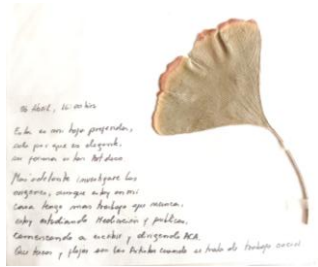 16 Abril, 14:00 hrs
Esta es mi hoja preferida,
creo por que es elegante.
su forma es tan
Más adelante investigaré los
orígenes, aunque estoy en mi
casa tengo mas trabajo que nunca.
estoy estudiando Mediación y públicos,
comenzando a escribir y dirigiendo ACA.
Que y flojos son los Artistas cuando se trata de trabajo social